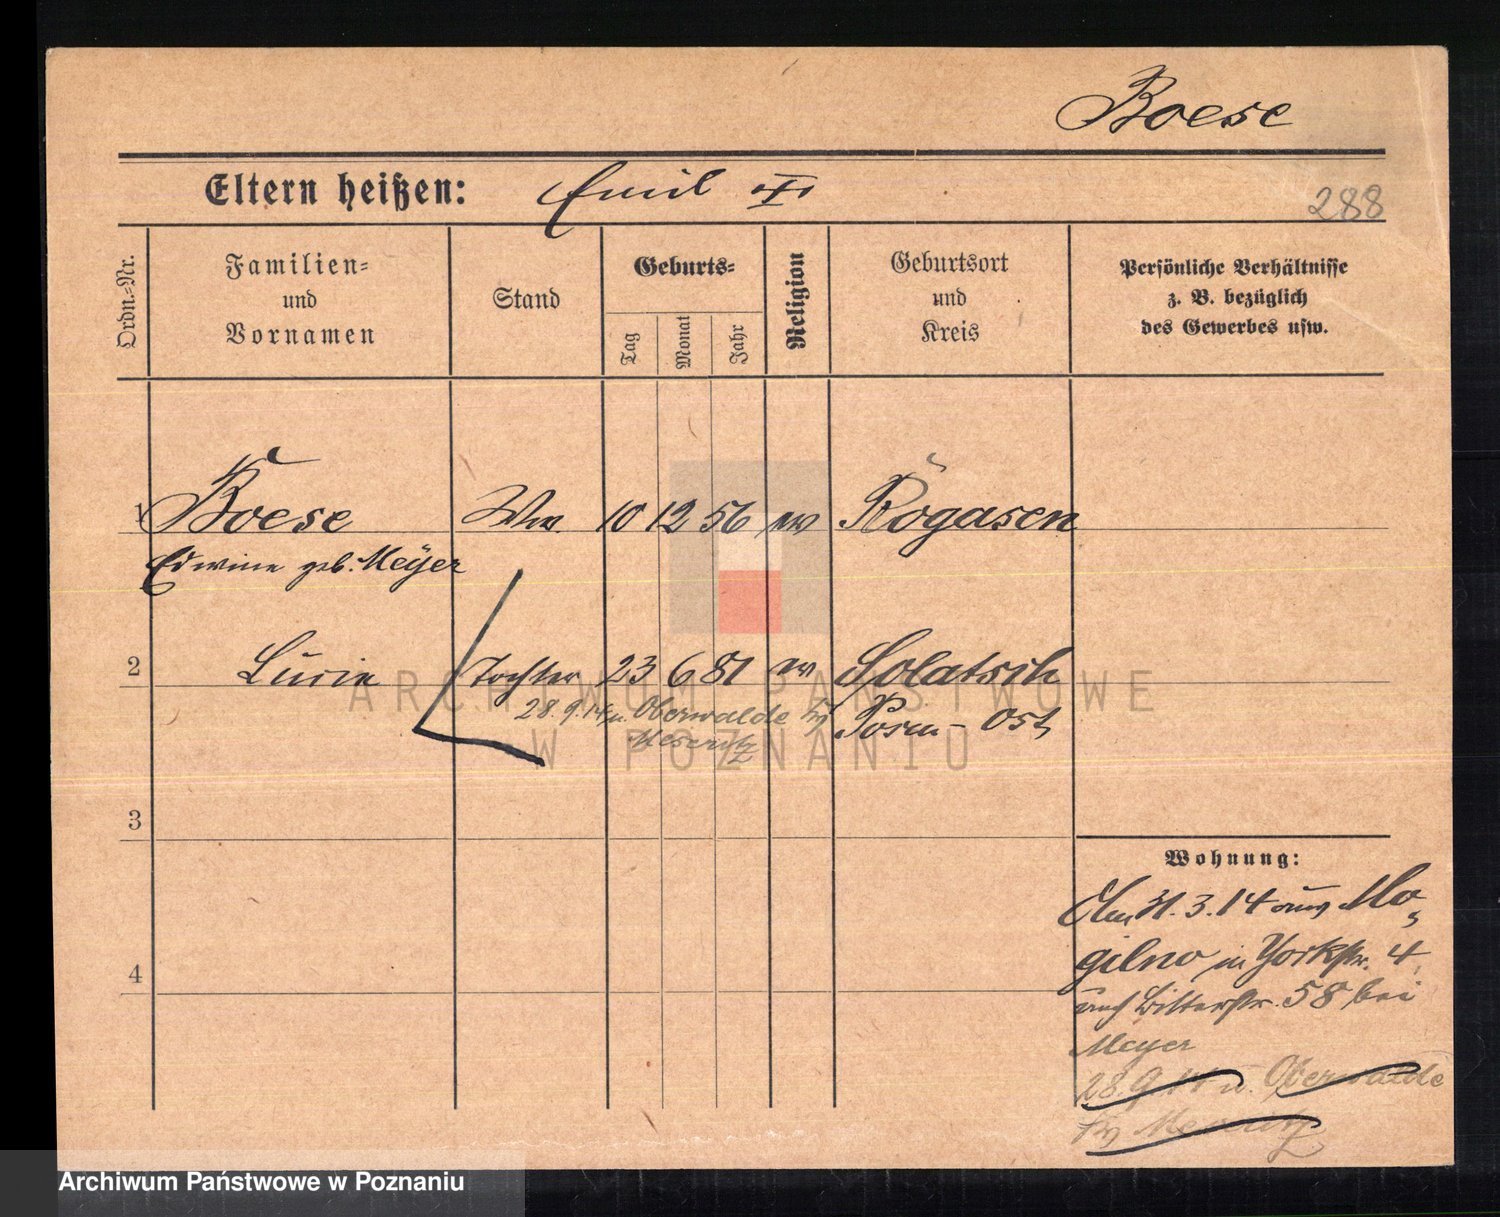 Boese
Eltern heißen: Emil
288
Ordn.-Nr.
Familien-
und
Vornamen
Stand
Geburts-
Tag
Monat
Jahr
Religion
Geburtsort
und
Kreis
Persönliche Verhältnisse
z. B. bezüglich
des Gewerbes usw.
1 Boese Ww. 10 12 56 ev Rogasen
Edwine geb. Meyer
2 Lucie Tochter 23 6 81 ev Solatsch
28.9.14 n. Oberwalde Posen-Ost
Meseritz
ARCHIWUM PAŃSTWOWE
W POZNANIU
3
Wohnung:
Am 31.3.14 aus Mo-
gilno in Yorkstr. 4
4
58 bei
Meyer
28.9.14 n. Oberwalde
Meseritz
Archiwum Państwowe w Poznaniu